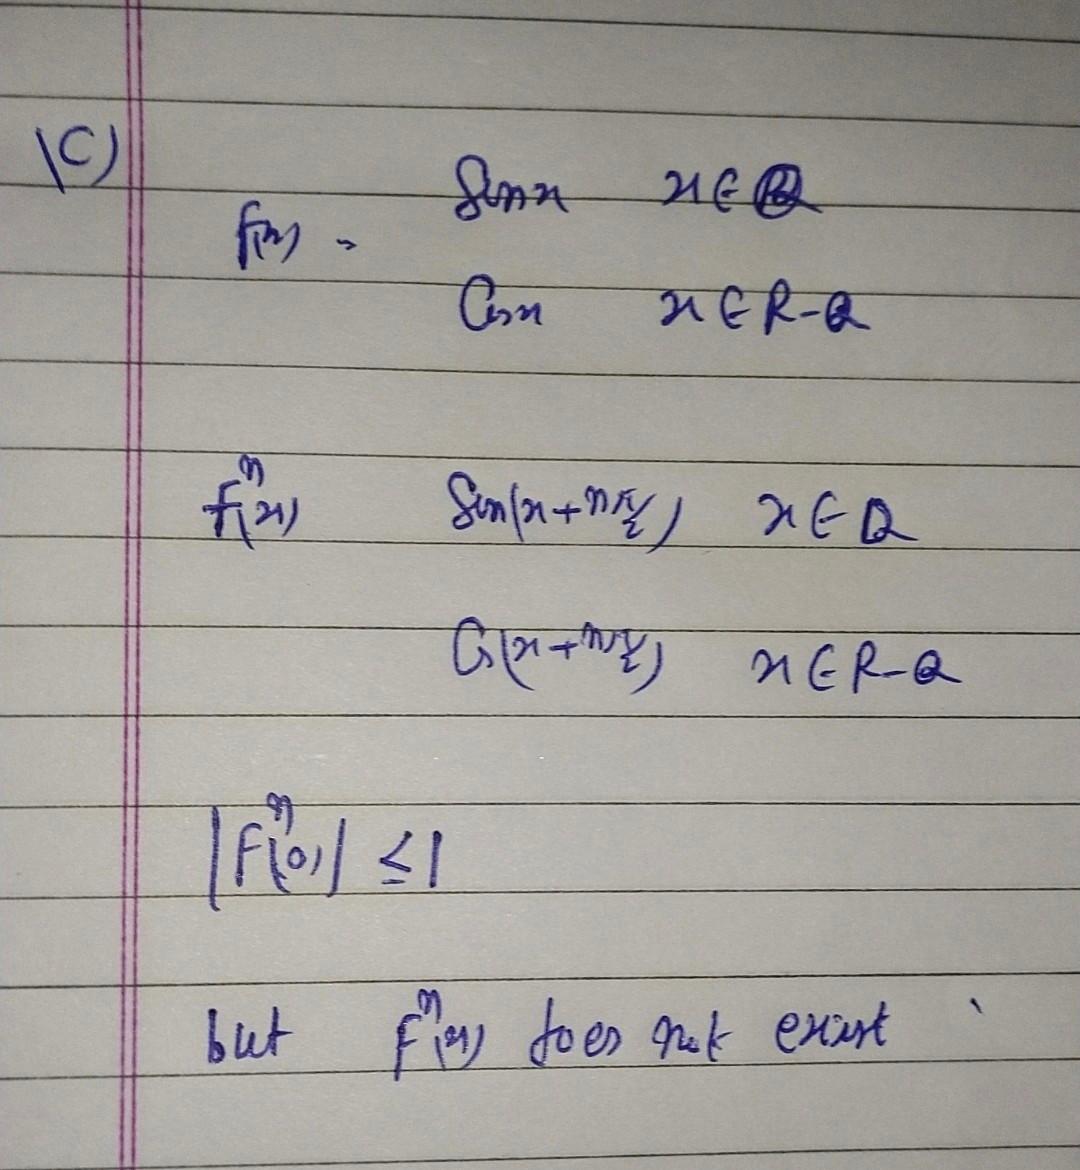 (C)
Sinx x∈Q
f(x) =
Cosx x∈R-Q
fⁿ(x) Sin(x+nπ/2) x∈Q
Cos(x+nπ/2) x∈R-Q
|fⁿ(0)| ≤1
but fⁿ(x) does not exist